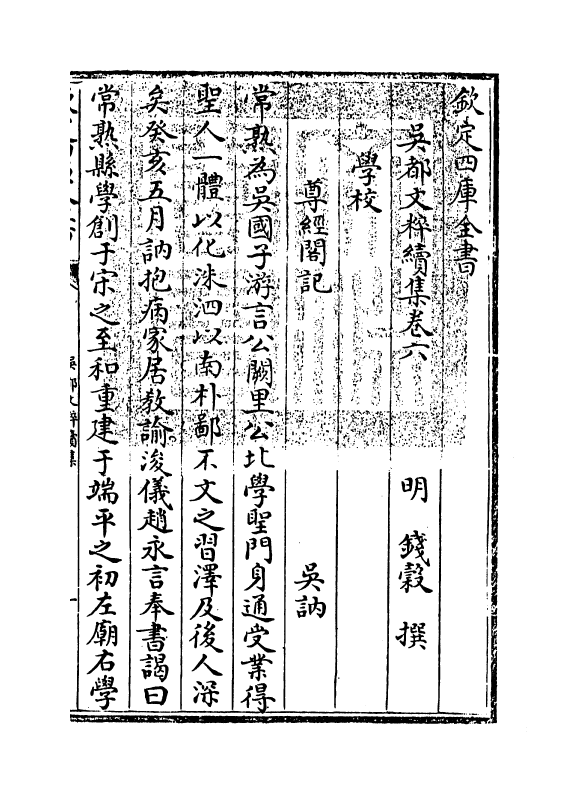 欽定四庫全書
吳都文粹續集卷六
明 錢穀 撰
學校
尊經閣記
吳訥
常熟為吳國子游言公闕里公北學聖門身通受業得
聖人一體以化洙泗以南朴鄙不文之習澤及後人深
矣癸亥五月訥抱病家居教諭浚儀趙永言奉書謁曰
常熟縣學創于宋之至和重建于端平之初左廟右學